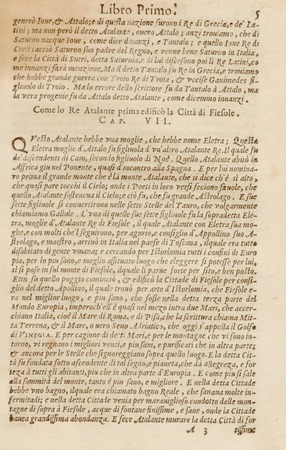 Libro Primo. 5
generò Ioue, & Attalo; e di questa nazione furono i Re di Grecia, e de' La-
tini; ma non però il detto Atalante, ouero Attalo; anzi trouiamo, che di
Saturno nacque Ioue, come dice dinanzi, e Tantalo; e quello Ioue Re di
Creti cacciò Saturno suo padre del Regno, e venne bene Saturno in Italia,
e fece la Città di Sutri, detta Saturnia; e di lui discesono poi li Re Latini, co
me innanzi farà menzione. Ma il detto Tantalo fu Re in Grecia, e trouiamo
che hebbe grande guerra con Troio Re di Troia, & vccise Ganimedes fi-
gliuolo di Troio. Ma lo errore dello scrittore fu da Tantalo à Attalo, ma
la vera progenie fu da Attalo detto Atalante, come dicemmo innanzi.
Come lo Re Atalante prima edificò la Città di Fiesole.
CAP. VII.
QVesto Atalante hebbe vna moglie, che hebbe nome Eletra; Quella
Eletra moglie d'Attalo fu figliuola d'vn'altro Atalante Re. Il quale fu
de' discendenti di Cam, secondo figliuolo di Noè. Quello Atalante abitò in
Affrica giu nel Ponente, quasi d'incontro alla Spagna. E per lui nomina-
uo prima il grande monte che è là monte Atalante, che si dice ch'è sì alto,
che quasi pare tocchi il Cielo; onde i Poeti in loro versi feciono fauole, che
quello Atalante sostenea il Cielo; e ciò fu, che fu grande Astrolago, E sue
sette figliuole si conuertirono nelle sette Stelle del Tauro, che volgarmente
chiamamo Galluzze. L'vna di quelle sue sette figliuole fu la sopradetta Ele-
tra, moglie d'Atalante Re di Fiesole, il quale Atalante con Eletra sua mo-
glie, e con molti che'l seguirono, per agurio, e consiglio d'Appollino suo A-
strolago, e maestro, arriuò in Italia nel paese di Toscana, il quale era tutto
disabitato di gente vmana; e cercando per Istolomia tutti i confini di Euro
pia, per lo più sano, e meglio assituato luogo che eleggere si potesse per lui,
si si pose in sul monte di Fiesole, il quale li parue forte per sito, e ben posto.
Et in su quello poggio cominciò, & edificò la Cittade di Fiesole per consi-
glio del detto Apollino, il quale trouò per arte d'Istolomia, che Fiesole e-
ra nel miglior luogo, e più sano, che fosse nella detta terza parte del
Mondo Europia, Imperochè ell'è quasi nel mezzo intra due Mari, che accer-
chiano Italia, cioè il Mare di Roma, e di Pisa, che la scrittura chiama Mi-
ta Terrena, & il Mare, ouero Seno Adriatico, che oggi s'appella il Golfo
di VINEGIA. E per cagione de' detti Mari, e per le montagne che vi sono in-
torno, vi regnano i migliori venti, e più sani, e purificati che in altra parte;
& ancora per le Stelle che signoreggiano sopra quello luogo. E la detta Cit-
tà fu fondata sotto ascendente di tal segno, e pianeta, che dà allegrezza, e for
tezza à tutti gli abitanti, più che in altra parte d'Europia. E come più si sale
alla sommità del monte, tanto è più sano, e migliore. E nella detta Cittade
hebbe vno bagno, il quale era chiamato bagno Reale, che sanaua molte in-
fermitadi; e nella detta Cittade venia per marauiglioso condotto delle mon-
tagne di sopra à Fiesole, acque di fontane finissime, e sane, onde la Cittade
hauea grandissima abondanza. E fece Atalante murare la detta Città di for
A 3 tissime